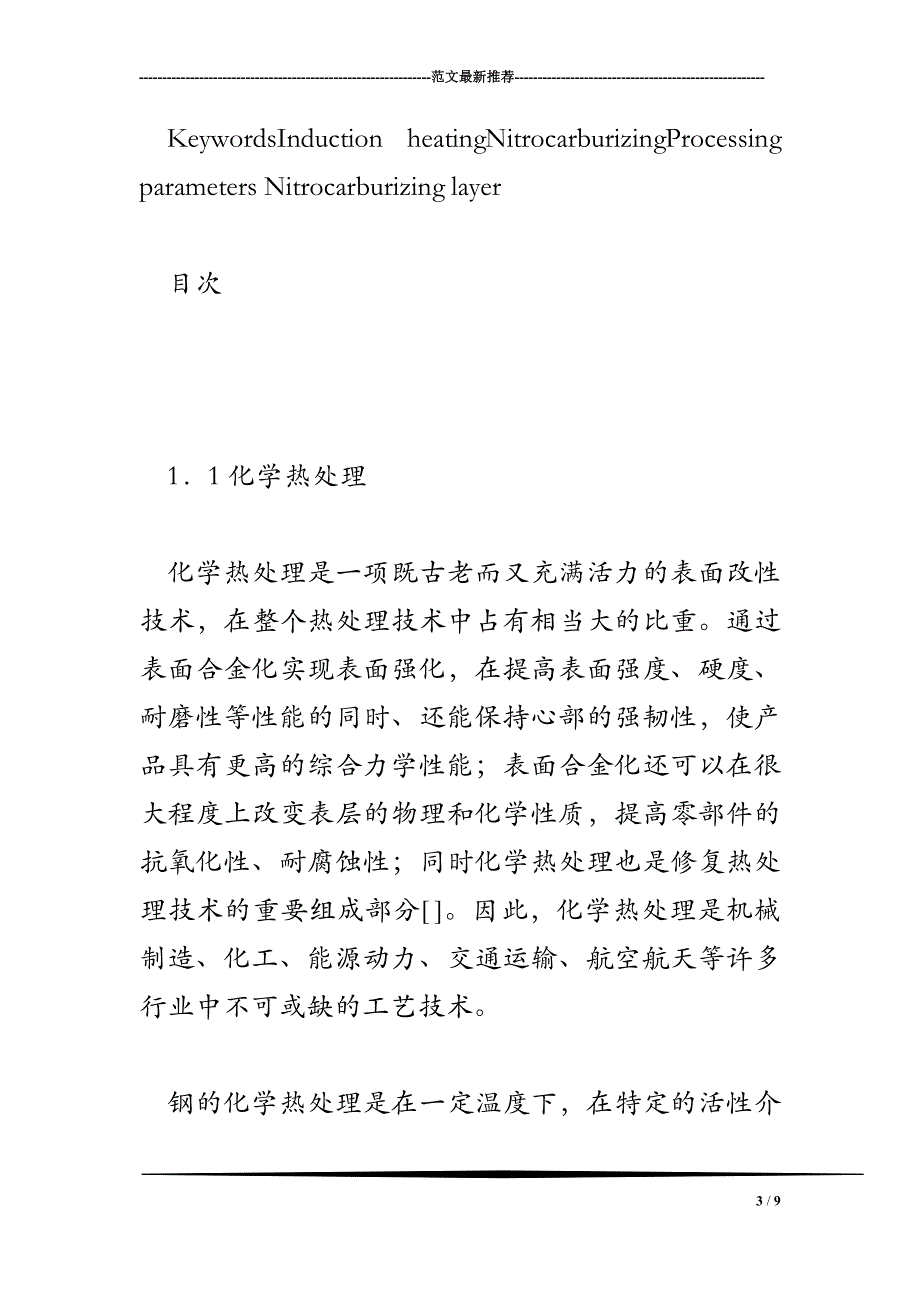 ---------------------------------------------------------------范文最新推荐------------------------------------------------------
KeywordsInduction heatingNitrocarburizingProcessing
parameters Nitrocarburizing layer
目次
1．1 化学热处理
化学热处理是一项既古老而又充满活力的表面改性
技术，在整个热处理技术中占有相当大的比重。通过
表面合金化实现表面强化，在提高表面强度、硬度、
耐磨性等性能的同时、还能保持心部的强韧性，使产
品具有更高的综合力学性能；表面合金化还可以在很
大程度上改变表层的物理和化学性质，提高零部件的
抗氧化性、耐腐蚀性；同时化学热处理也是修复热处
理技术的重要组成部分[ ]。因此，化学热处理是机械
制造、化工、能源动力、交通运输、航空航天等许多
行业中不可或缺的工艺技术。
钢的化学热处理是在一定温度下，在特定的活性介
3 / 9